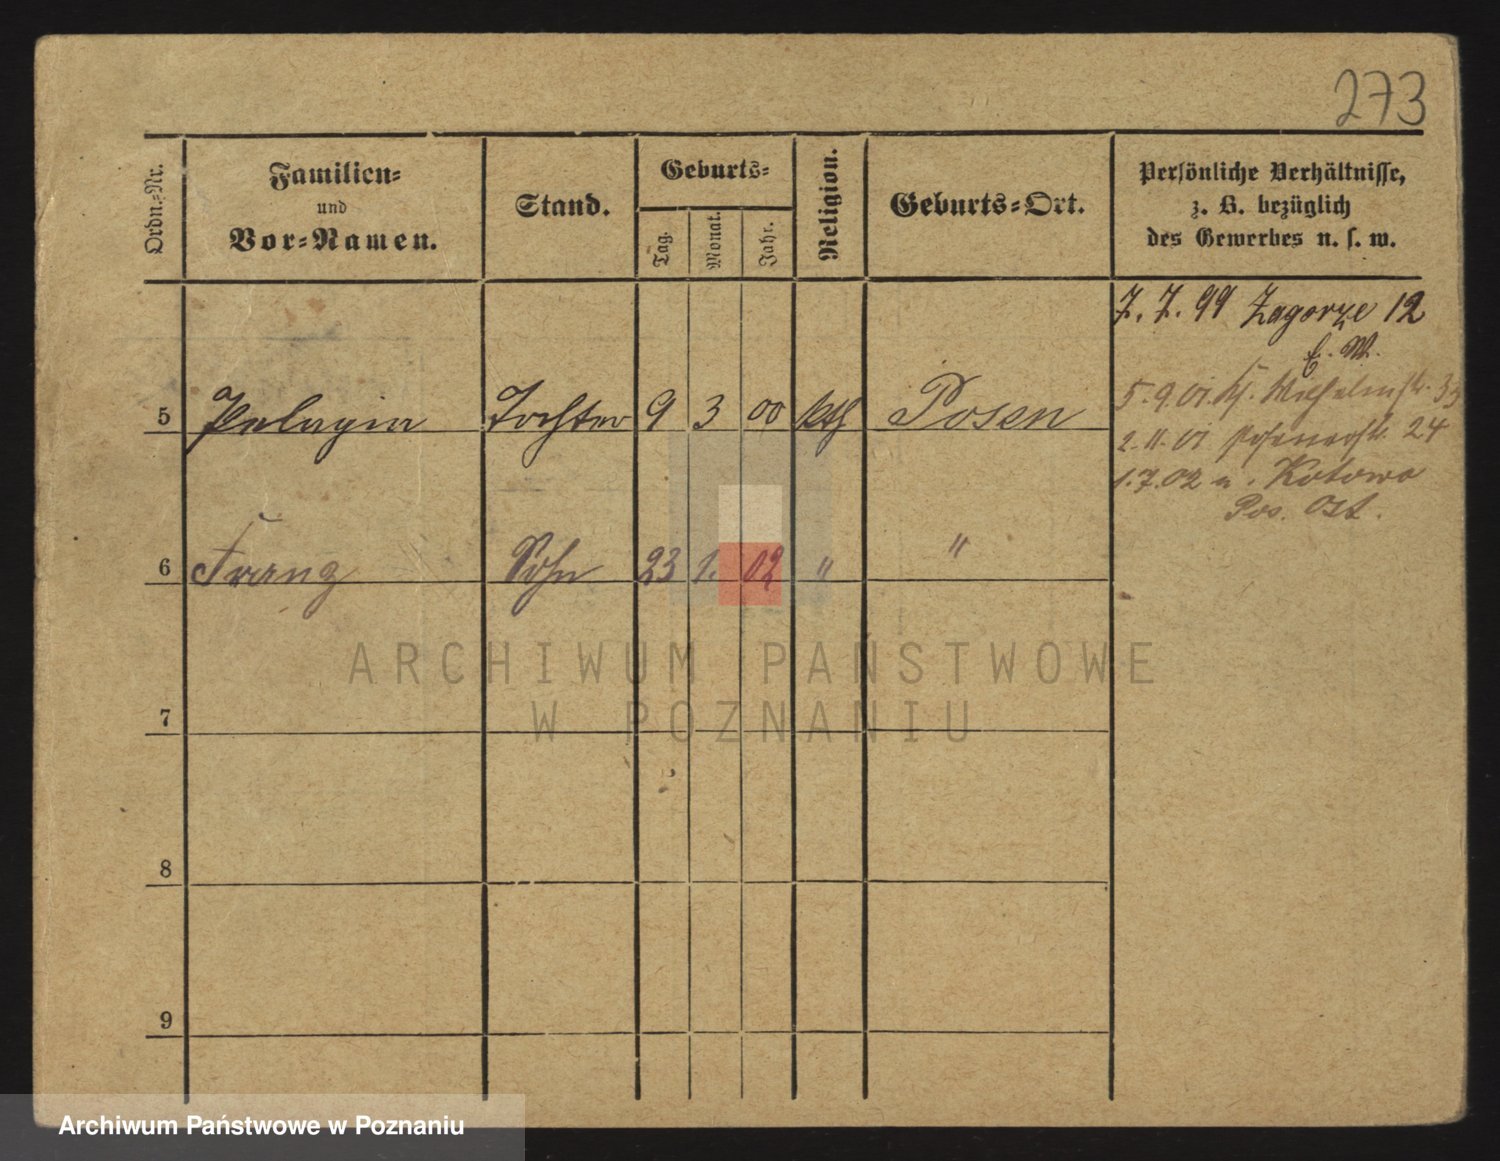 273
Ordn.-Nr.
Familien-
und
Vor-Namen.
Stand.
Geburts-
Tag.
Monat.
Jahr.
Religion.
Geburts-Ort.
Persönliche Verhältnisse,
z. B. bezüglich
des Gewerbes u. s. w.
7. 7. 99 Zagorze 12
b. W.
5 Pelagia Tochter 9 3 00 kth Posen
5. 9. 01. Kl. Wilhelmstr. 33
2. 11. 01 Posenerstr. 24
1. 7. 02 n. Kotowo
Pos. Ost.
6 Franz Sohn 23 1. 02 " "
ARCHIWUM PAŃSTWOWE
W POZNANIU
7
8
9
Archiwum Państwowe w Poznaniu